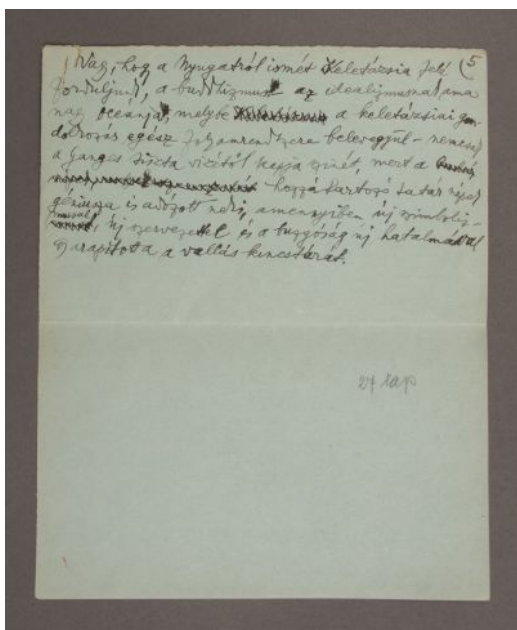 Vagy, hog a Nyugatról ismét Keletázsia felé (5
forduljunk, a buddhizmus az idealizmusnak ama
nagy óceánja, melybe a keletázsiai gon-
dolkozás egész folyamrendszere belevegyül – nemcsak
a Ganges tiszta vizétől kapja színét, mert a
hozzá tartozó tatár népek
géniusza is adózott neki, amennyiben új szimbolis-
mussal, új szervezettel és a buzgóság új hatalmával
gyarapította a vallás kincstárát.
27 lap